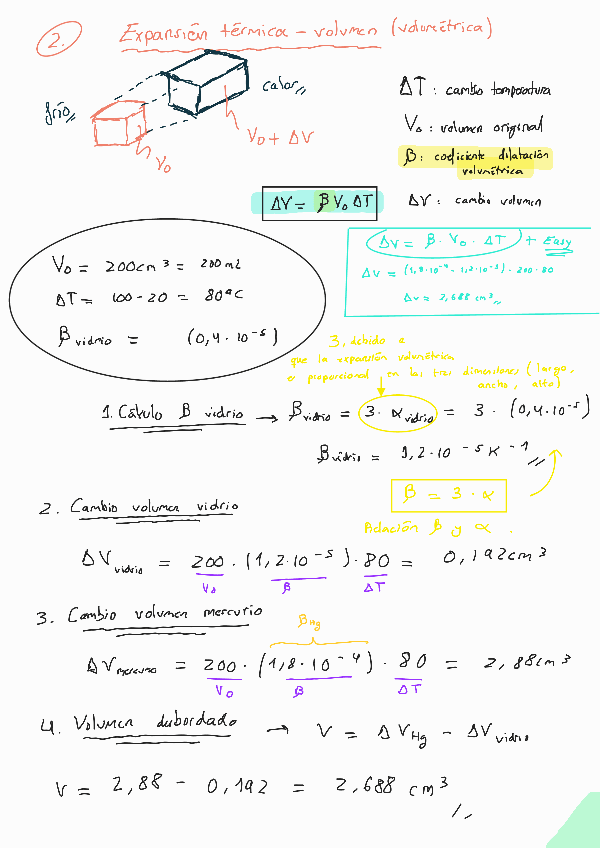 2. Expansión térmica - volumen (volumétrica)
frío
calor
V₀
V₀ + ΔV
ΔT : cambio temperatura
V₀ : volumen original
β : coeficiente dilatación
volumétrica
ΔV : cambio volumen
ΔV = β V₀ ΔT
ΔV = β · V₀ · ΔT + Easy
ΔV = (1,8·10⁻⁴ - 1,2·10⁻⁵) · 200 · 80
ΔV = 2,688 cm³
V₀ = 200cm³ = 200 ml
ΔT = 100 - 20 = 80ºC
β vidrio = (0,4·10⁻⁵)
3, debido a
que la expansión volumétrica
es proporcional en las tres dimensiones (largo,
ancho, alto)
1. Cálculo β vidrio → β vidrio = 3 · α vidrio = 3 · (0,4·10⁻⁵)
β vidrio = 1,2·10⁻⁵ K⁻¹
β = 3 · α
Relación β y α .
2. Cambio volumen vidrio
ΔV vidrio = 200 · (1,2·10⁻⁵) · 80 = 0,192cm³
V₀ β ΔT
3. Cambio volumen mercurio
β Hg
ΔV mercurio = 200 · (1,8·10⁻⁴) · 80 = 2,88cm³
V₀ β ΔT
4. Volumen desbordado → V = ΔV Hg - ΔV vidrio
V = 2,88 - 0,192 = 2,688 cm³